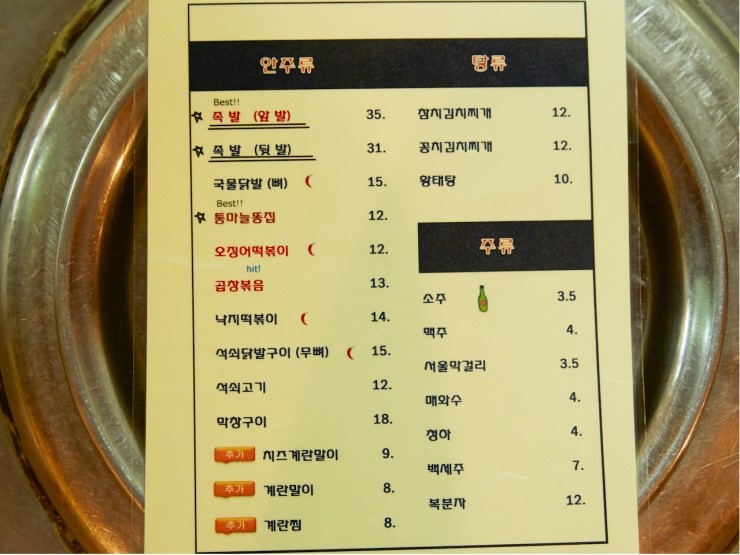 안주류
Best!!
족발 (앞발) 35.
족발 (뒷발) 31.
국물닭발 (뼈) 15.
Best!!
통마늘똥집 12.
오징어떡볶이 12.
hit!
곱창볶음 13.
낙지떡볶이 14.
석쇠닭발구이 (무뼈) 15.
석쇠고기 12.
막창구이 18.
추가 치즈계란말이 9.
추가 계란말이 8.
추가 계란찜 8.
탕류
참치김치찌개 12.
꽁치김치찌개 12.
황태탕 10.
주류
소주 3.5
맥주 4.
서울막걸리 3.5
매화수 4.
청하 4.
백세주 7.
복분자 12.